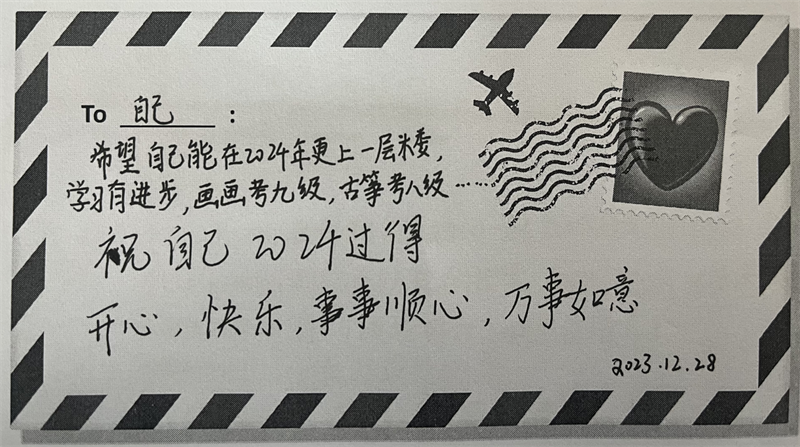 To 自己 :
希望自己能在2024年更上一层米委,
学习有进步,画画考九级,古筝考八级……
祝自己2024过得
开心,快乐,事事顺心,万事如意
2023.12.28